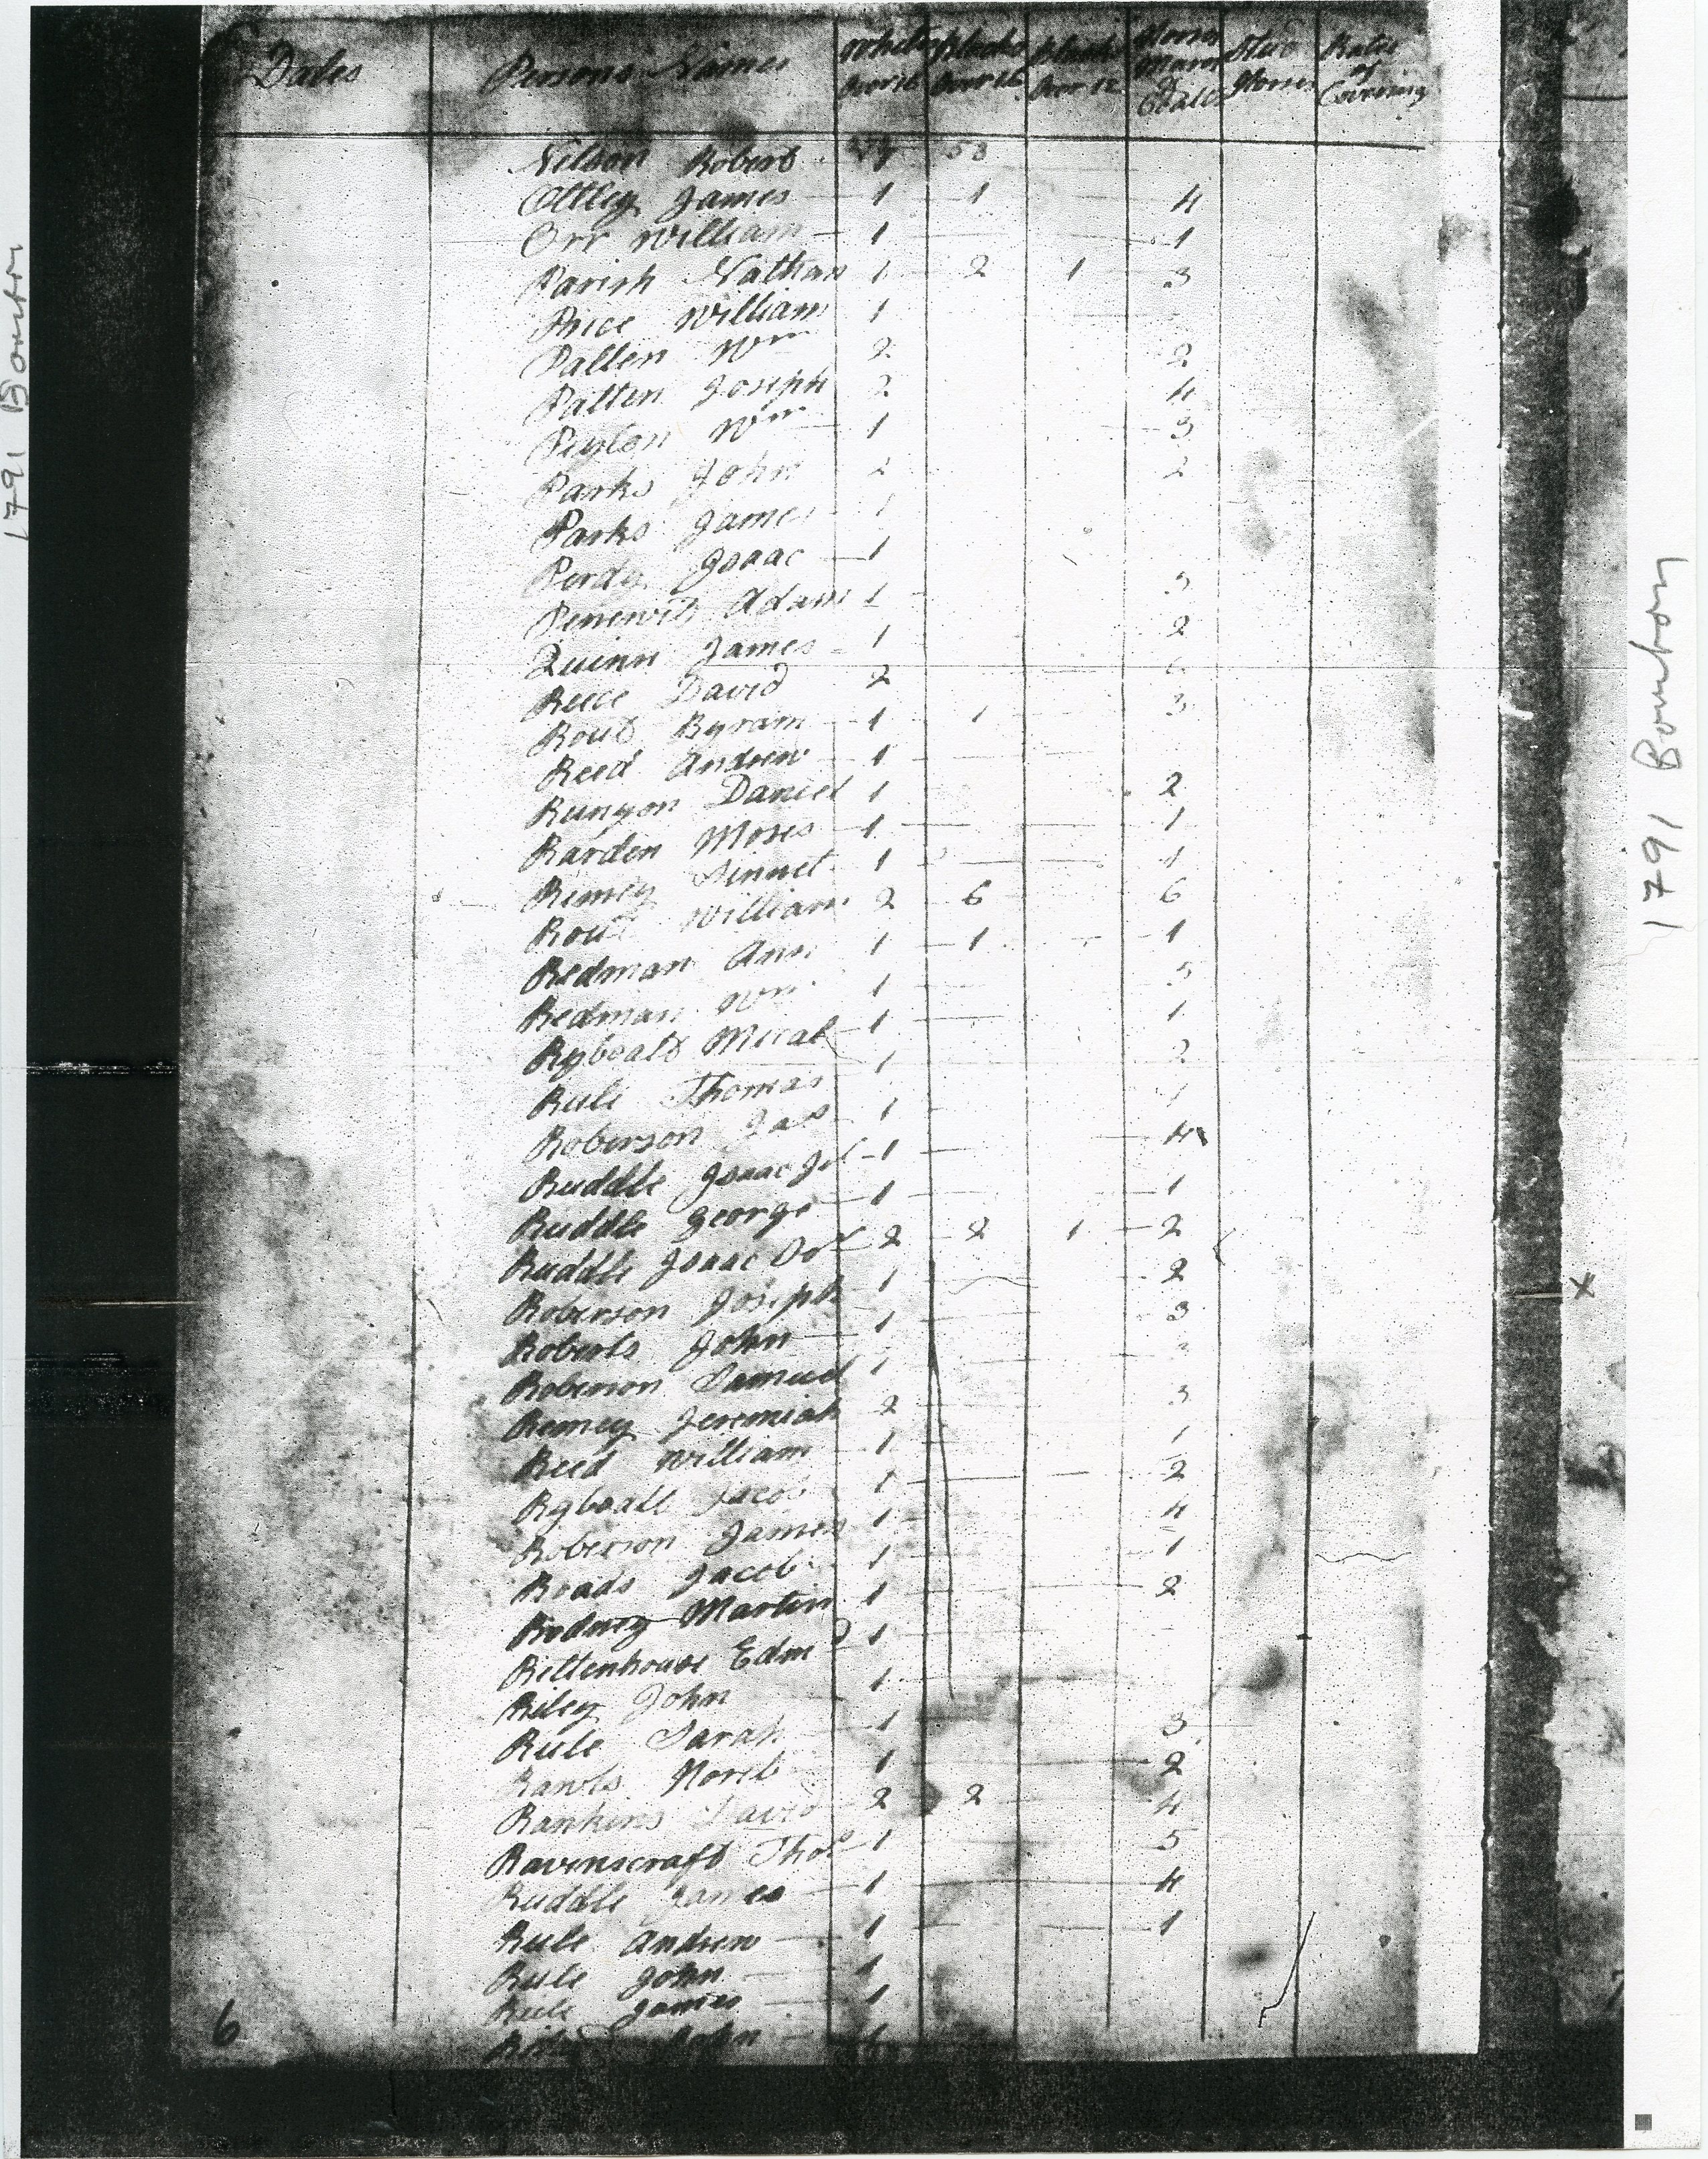 Dates Persons Names Whites over 16 Blacks over 16 Blacks over 12 Horses Mares Stud Horses Rates of Covering
Nilson Robert 53
Ottley James 1 1 4
Orr William 1 1
Parish Nathan 1 2 1 3
Price William 1
Patten Wm 2 2
Patten Joseph 2 4
Peyton Wm 1 3
Parks John 2 2
Parks James 1
Perdy Isaac 1
Penewit Adam 1 3
Quinn James 1 2
Reece David 2 6
Rout Byram 1 1 3
Reed Andrew 1
Runyon Daniel 1 2
Rarden Moses 1 1
Remey Sinnet 1 1
Rout William 2 6 6
Redman Ann 1 1 1
Redman Wm 1 5
Ryboalt Mical 1 1
Rule Thomas 1 2
Roberson Jas 1 1
Ruddle Isaac Jr 1 4
Ruddle George 1 1
Ruddle Isaac 2 2 1 2
Roberson Joseph 1 2
Roberts John 1 3
Roberson Samuel 1
Remey Jeremiah 2 3
Reed William 1 1
Ryboalt Jacob 1 2
Roberson James 1 4
Roads Jacob 1 1
Rodney Martin 1 2
Rittenhouse Edmd 1
Riley John 1
Rule Sarah 1 3
Rawls Horeb 1 2
Rankins David 2 2 4
Ravenscraft Thos 1 5
Ruddle James 1 4
Rule Andrew 1 1
Rule John 1
Rule James 1
John
6
1791 Bourbon
1791 Bourbon
x